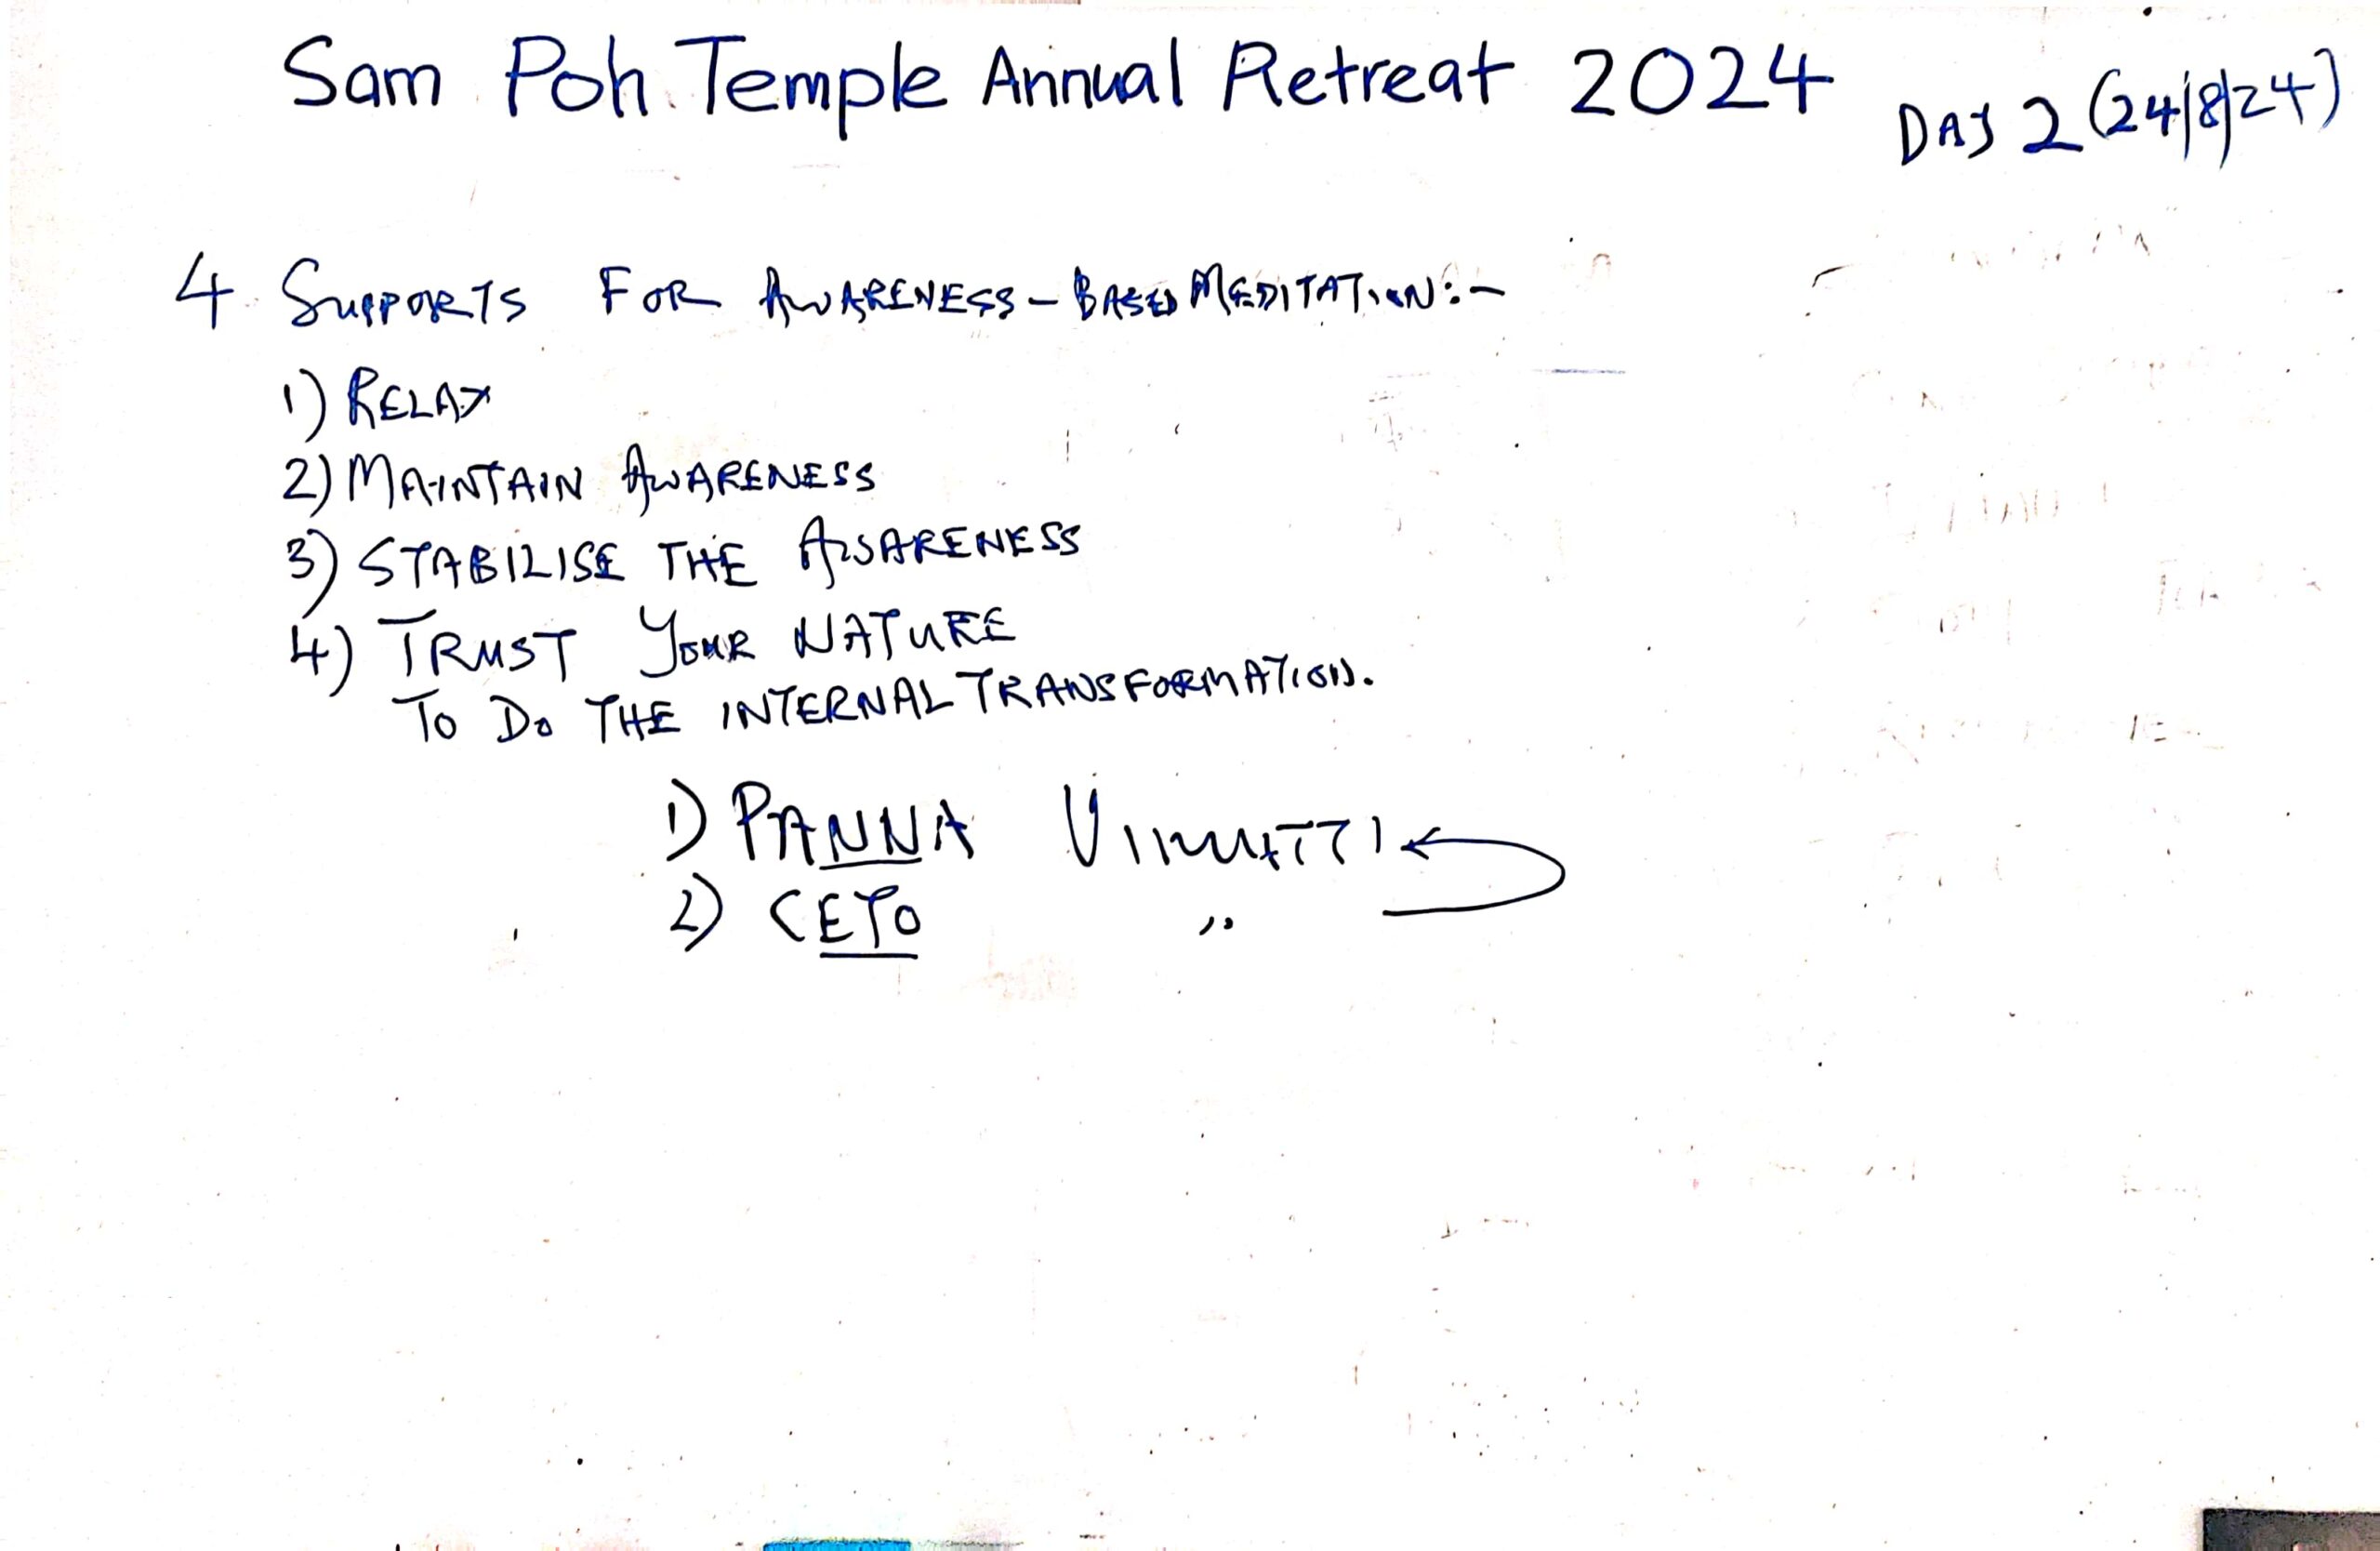 Sam Poh Temple Annual Retreat 2024 DAY 2 (24/8/24)
4 SUPPORTS FOR AWARENESS-BASED MEDITATION:-
1) RELAX
2) MAINTAIN AWARENESS
3) STABILISE THE AWARENESS
4) TRUST YOUR NATURE
TO DO THE INTERNAL TRANSFORMATION.
1) PANNA VIMUTTI
2) CETO "